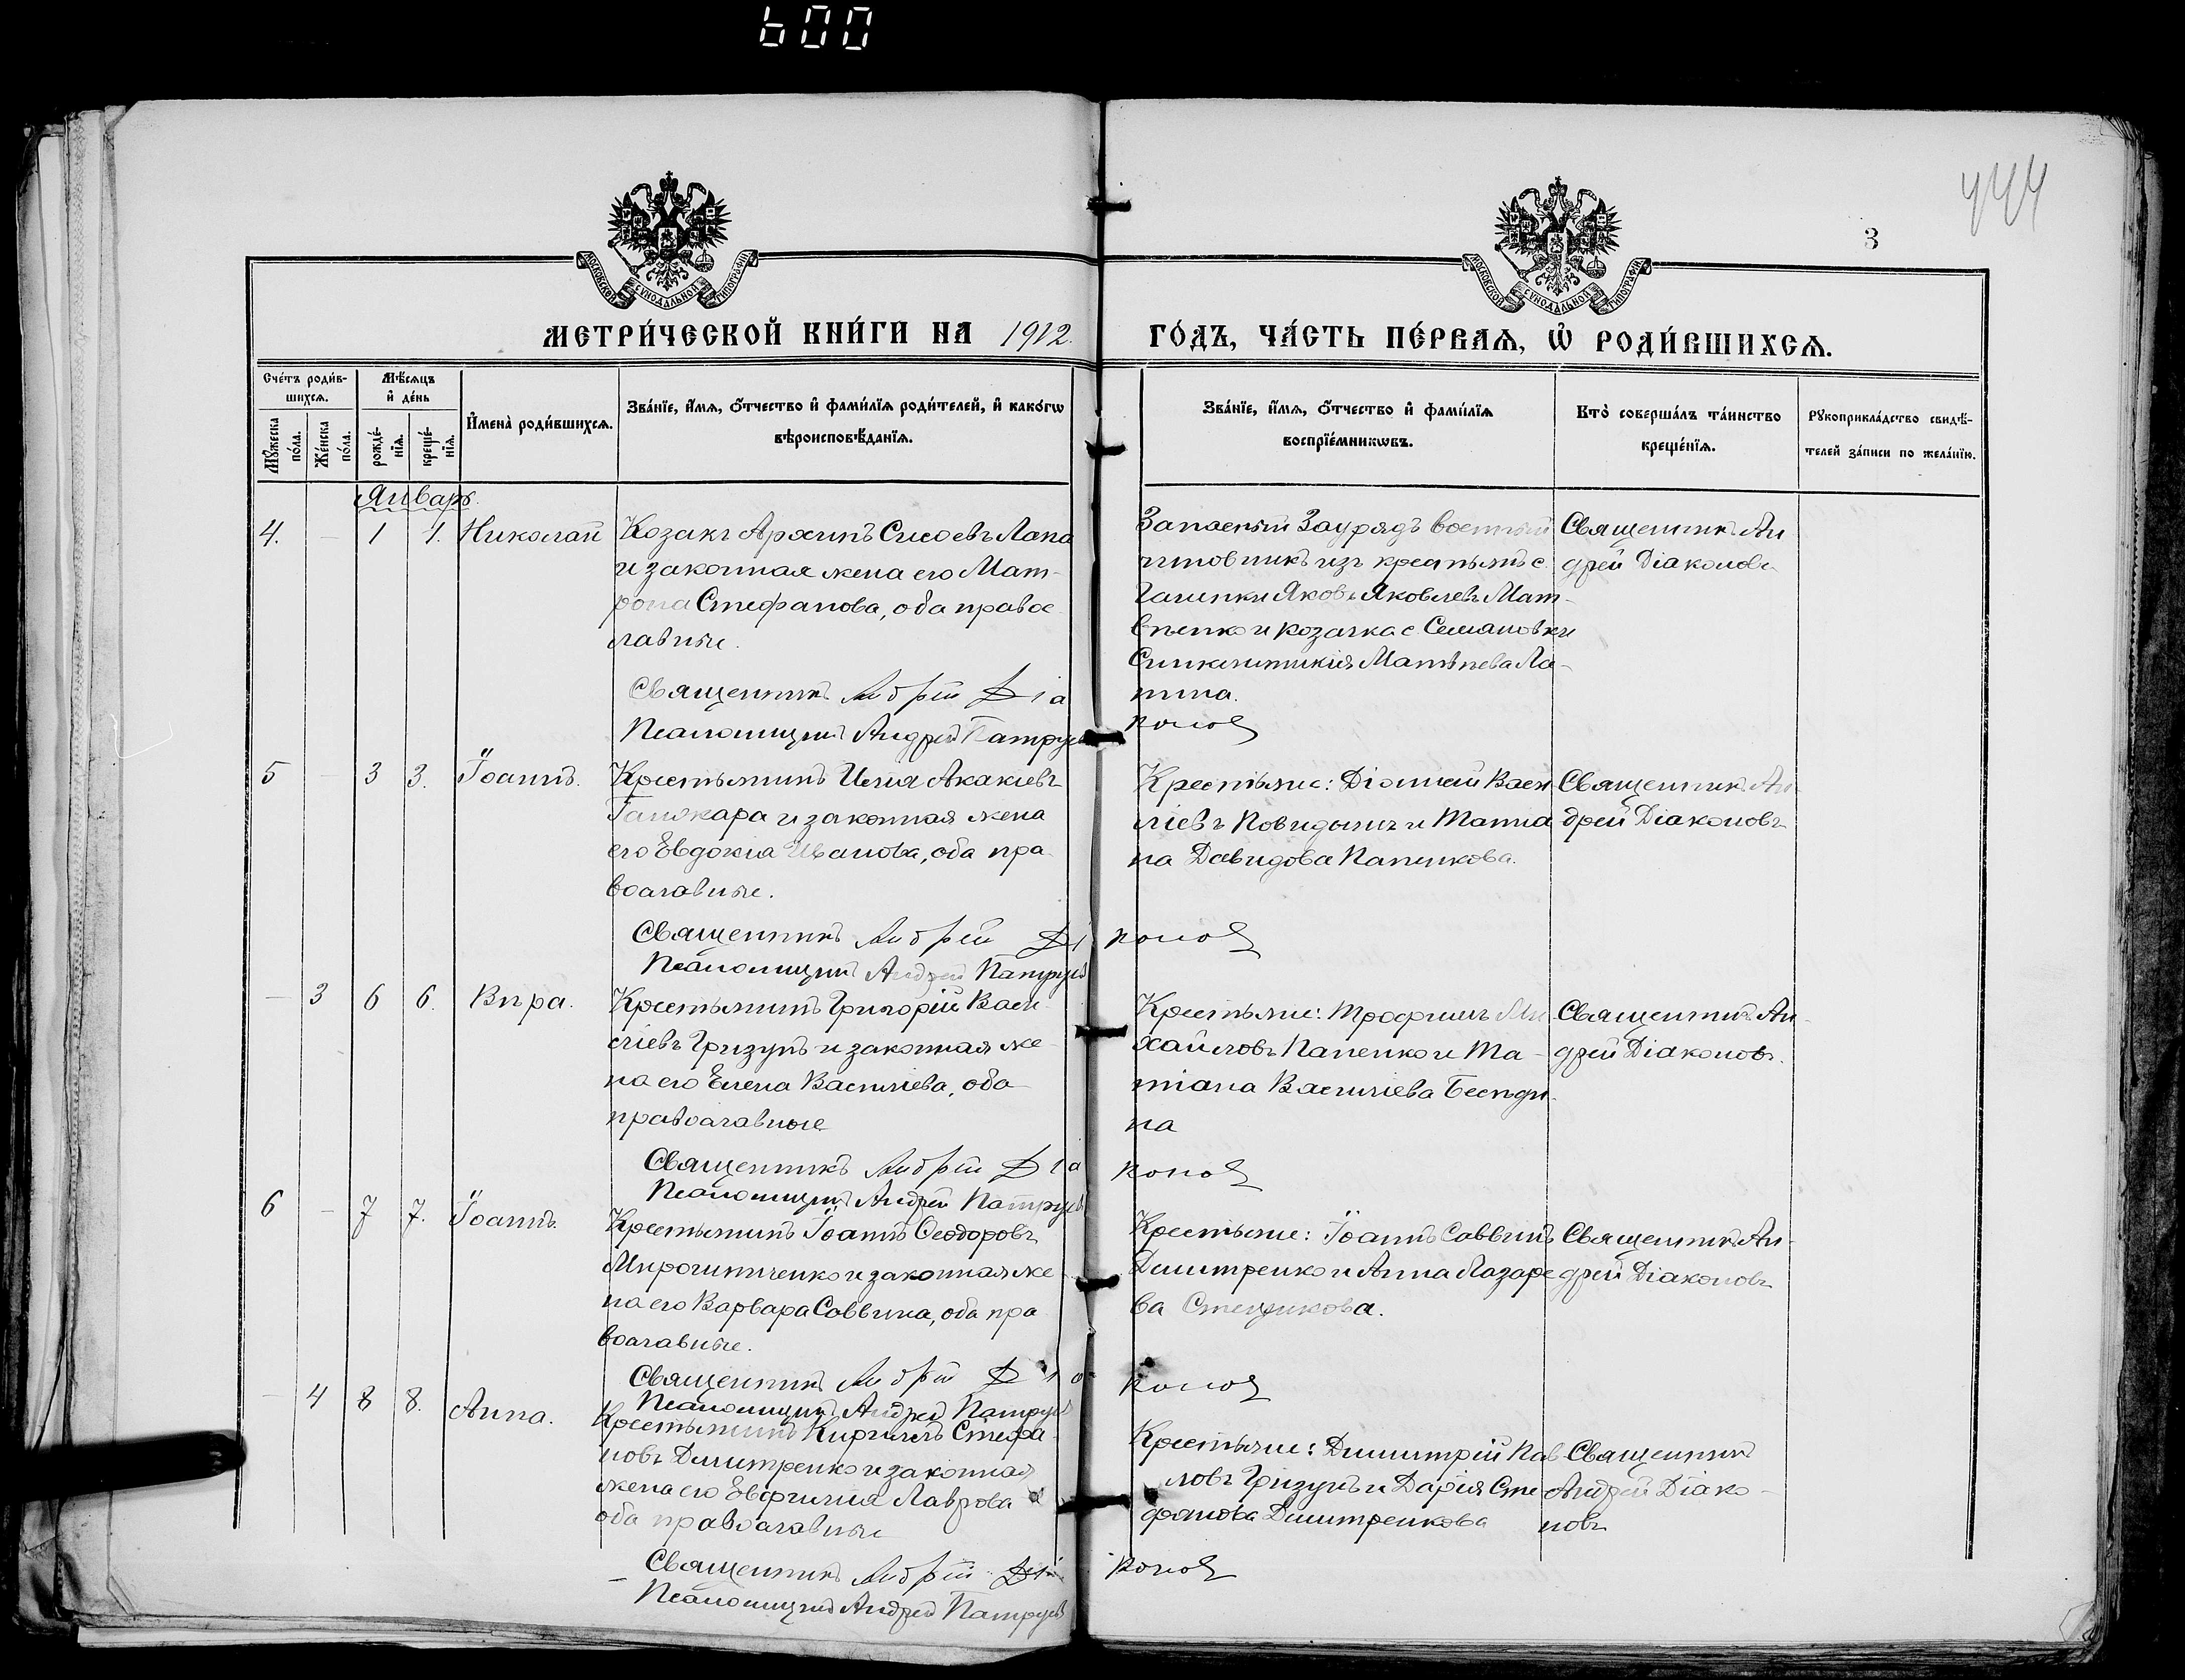 600
444
3
МОСКОВСКОЙ СѴНОДАЛЬНОЙ ТИПОГРАФІИ
МОСКОВСКОЙ СѴНОДАЛЬНОЙ ТИПОГРАФІИ
МЕТРИ́ЧЕСКОЙ КНИ́ГИ НА 1912. ГО́ДЪ, ЧА́СТЬ ПЕ́РВАѦ, Ѽ РОДИ́ВШИХСѦ.
Сче́тъ роди́в-
шихсѧ.
Мꙋ́жеска
по́ла.
Же́нска
по́ла.
Мѣ́сѧцъ
и҆ де́нь
рожде́-
нїѧ.
креще́-
нїѧ.
И҆мена̀ роди́вшихсѧ.
Зва́нїе, и҆́мѧ, ѻ҆́тчество и҆ фами́лїѧ роди́телей, и҆ како́гѡ
вѣроисповѣ́данїѧ.
Зва́нїе, и҆́мѧ, ѻ҆́тчество и҆ фами́лїѧ
воспрїе́мникѡвъ.
Кто̀ соверша́лъ та́инство
креще́нїѧ.
Рꙋкоприкла́дство свидѣ́-
телей за́писи по жела́нїю.
Январь.
4. — 1 1. Николай
Козакъ Архипъ Сисоевъ Лапа
и законная жена его Мат-
рона Стефанова, оба правос
лавные.
Священникъ Андрей Діа
Псаломщикъ Андрей
Запасный Заурядъ военный
чиновникъ изъ крестьянъ с.
Яковъ Яковлевъ Мат-
вѣенко и козачка с. Семяновки
Синклитикія Матѳѣева Ла-
пина.
коновъ
Священникъ Ан
дрей Діаконовъ
5 — 3 3. Іоаннъ.
Крестьянинъ Илія Акакіевъ
и законная жена
его Евдокія Иванова, оба пра
вославные.
Священникъ Андрей Ді
Псаломщикъ Андрей
Крестьяне: Васи
ліевъ и Татіа
на Давидова Папенкова.
коновъ
Священникъ Ан-
дрей Діаконовъ
— 3 6 6. Вѣра.
Крестьянинъ Григорій Васи-
ліевъ Гризунъ и законная же-
на его Елена Василіева, оба
православные
Священникъ Андрей Діа
Псаломщикъ Андрей
Крестьяне: Трофимъ Ми
хайловъ Папенко и Та-
тіана Василіева
на
коновъ
Священникъ Ан-
дрей Діаконовъ.
6 — 7 7. Іоаннъ.
Крестьянинъ Іоаннъ Ѳеодоровъ
Мирошниченко и законная же
на его Варвара Саввина, оба пра
вославные.
Священникъ Андрей Діа
Псаломщикъ Андрей
Крестьяне: Іоаннъ Саввинъ
Димитренко и Анна Лазаре
ва
коновъ
Священникъ Ан-
дрей Діаконовъ
— 4 8 8. Анна.
Крестьянинъ Кириллъ Стефа-
новъ Димитренко и законная
жена его Евфимія Лаврова
оба православные
Священникъ Андрей Ді
Псаломщикъ Андрей
Крестьяне: Димитрій Пав
ловъ Гризунъ и Дарія Сте
фанова Димитренкова
коновъ
Священникъ
Андрей Діако-
новъ